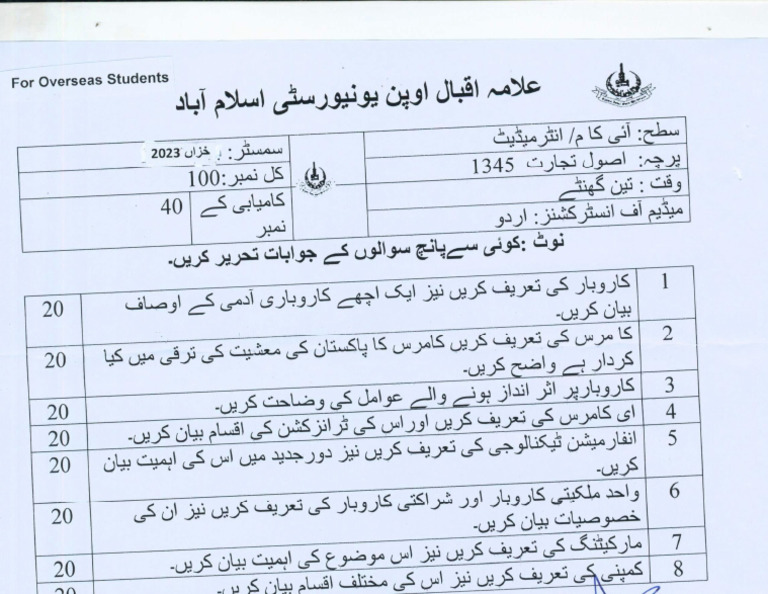 For Overseas Students
علامہ اقبال اوپن یونیورسٹی اسلام آباد
سطح: آئی کا م/ انٹرمیڈیٹ
پرچہ: اصول تجارت 1345
وقت : تین گھنٹے
میڈیم آف انسٹرکشنز: اردو
سمسٹر: خزاں 2023
کل نمبر:100
کامیابی کے نمبر 40
نوٹ :کوئی سےپانچ سوالوں کے جوابات تحریر کریں۔
1 کاروبار کی تعریف کریں نیز ایک اچھے کاروباری آدمی کے اوصاف
بیان کریں۔ 20
2 کا مرس کی تعریف کریں کامرس کا پاکستان کی معشیت کی ترقی میں کیا
کردار ہے واضح کریں۔ 20
3 کاروبارپر اثر انداز ہونے والے عوامل کی وضاحت کریں۔ 20
4 ای کامرس کی تعریف کریں اوراس کی ٹرانزکشن کی اقسام بیان کریں۔ 20
5 انفارمیشن ٹیکنالوجی کی تعریف کریں نیز دورجدید میں اس کی اہمیت بیان
کریں۔ 20
6 واحد ملکیتی کاروبار اور شراکتی کاروبار کی تعریف کریں نیز ان کی
خصوصیات بیان کریں۔ 20
7 مارکیٹنگ کی تعریف کریں نیز اس موضوع کی اہمیت بیان کریں۔ 20
8 کمپنی کی تعریف کریں نیز اس کی مختلف اقسام بیان کریں۔ 20